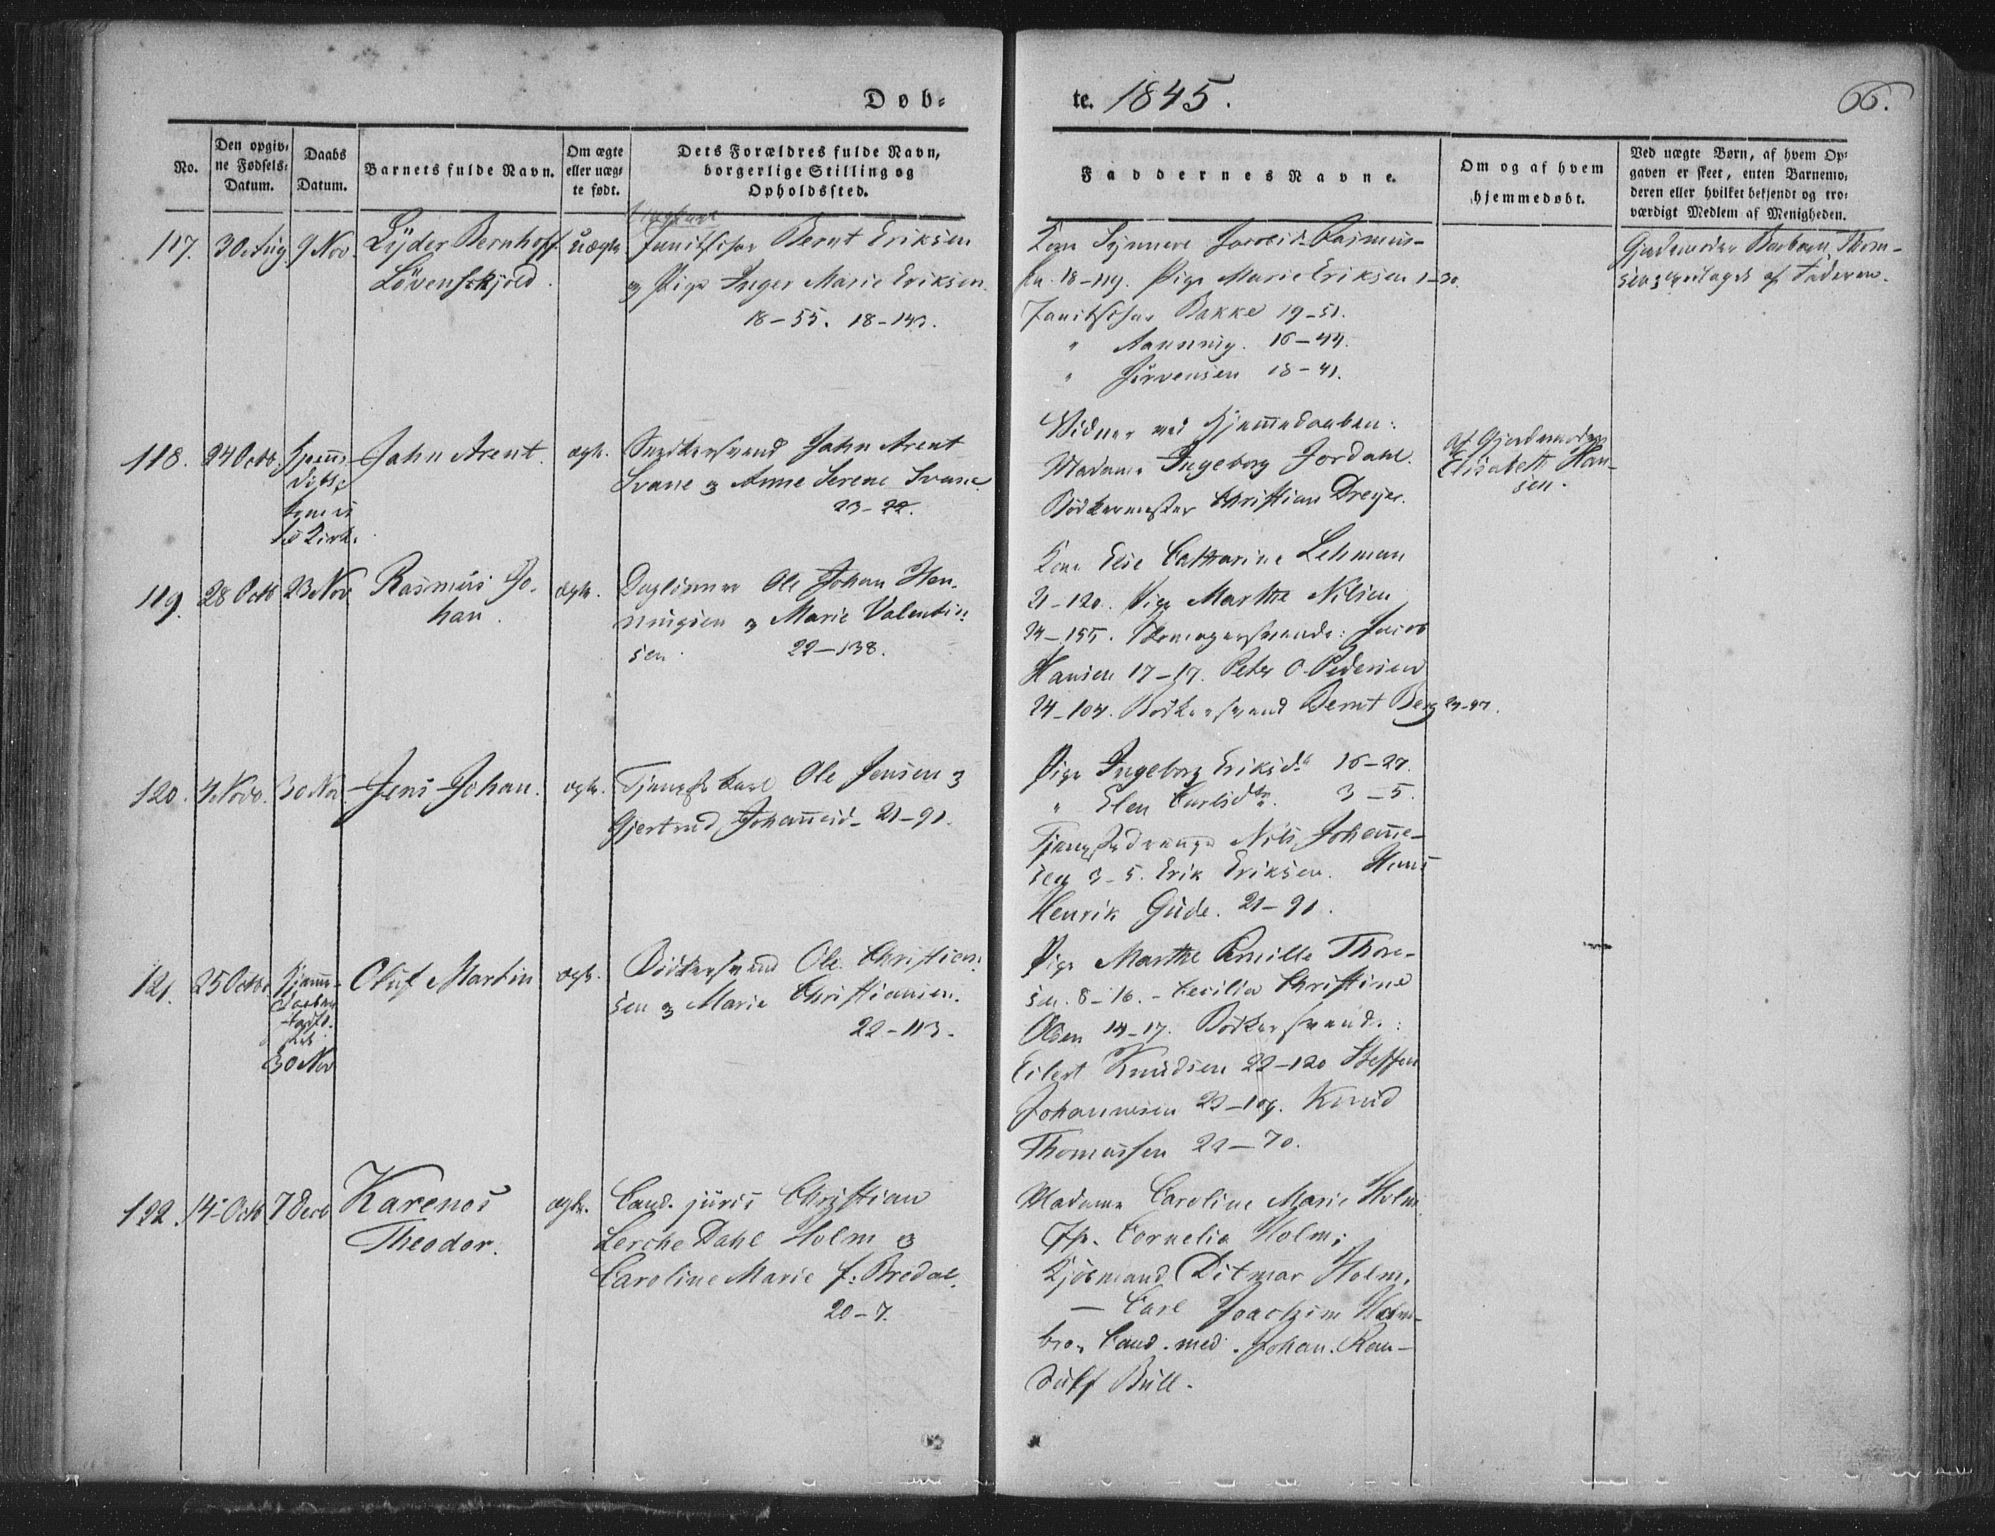 Døb-
te. 1845.
66.
No.
Den opgiv-
ne Fødsels-
Datum.
Daabs
Datum.
Barnets fulde Navn.
Om ægte
eller uæg-
te født.
Dets Forældres fulde Navn,
borgerlige Stilling og
Opholdssted.
Faddernes Navne.
Om og af hvem
hjemmedøbt.
Ved uægte Børn, af hvem Op-
gaven er skeet, enten Barnemo-
deren eller hvilket bekjendt og tro-
værdigt Medlem af Menigheden.
117.
30 Aug
9 Nov.
Lyder Bernhoff
Lövenskjold.
uægte
Janitschar Bernt Eriksen
og Pige Inger Marie Eriksen.
18-55. 18-143.
Kone Synneve Rasmus-
18-119. Pige Marie Eriksen 1-30.
Janitschar Bakke 19-51.
" Aanning. 16-44.
" 18-41.
Gjordemoder Barbara Thom-
sen af Faderen.
118.
24 Octb.
Hjemme-
døbt,
John Arent.
ægte.
Snedkersvend John Arent
Svane og Anne Serene Svane
23-22.
Vidner ved Hjemmedaaben:
Madame Ingeborg Jordahl.
Bødkermester Christian Dreyer.
af Gjordemoder
Elisabeth Han-
sen.
119.
28 Octb
23 Nov
Rasmus Jo-
han.
ægte.
Dagleier Ole Johan Hen-
ningsen og Marie Valentin-
sen. 22-138.
Kone Elie Catharine Lehman
21-120. Pige Marthe Nilsen
24-155. Jacob
Hansen 17-17. Peter O. Pedersen
24-104. Bødkersvend Bernt Berg 23-97.
120.
4 Novb.
30 Nov.
Jens Johan.
ægte.
Tjenestekarl Ole Jensen og
Gjertrud Johannesd. 21-91.
Pige Ingeborg Eriksdr 16-27.
" Elen Carlsdtr. 3-5.
Tjenestedrenge Nils Johanne-
sen 3-5. Erik Eriksen. Hans
Henrik Gude. 21-91.
121.
25 Octbr
Hjemme-
30 Nov
Oluf Martin
ægte.
Bødkersvend Ole Christian-
sen og Marie Christiansen.
22-113.
Pige Marthe Pernille Thore-
sen. 8-16. - Cecilia Christine
Olsen 14-17. Bødkersvende:
Eilert Knudsen 22-120 Steffen
Johannesen 23-109. Knud
Thomassen 22-70.
122.
14 Octb
7 Decb
Karenos
Theodor.
ægte.
Cand. juris Christian
Lerche Dahl Holm og
Caroline Marie f: Bredal.
20-7.
Madame Caroline Marie Holm.
Jfr. Cornelia Holm;
Kjøbmand Ditmar Holm.
— Carl Joachim Ham-
bro, Cand. med. Johan Ran-
dulf Bull.